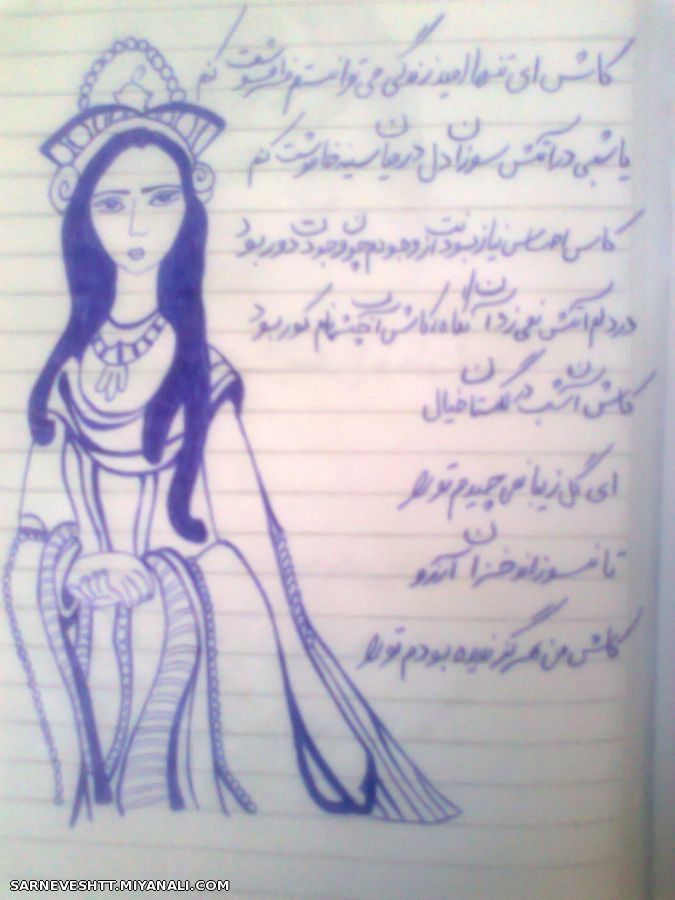 کاش ای تنها امید زندگی می توانستم فراموشت کنم
یا شبی در آتش سوزان دل در میان سینه خاموشت کنم
کاش احساس نیاز بودنت از وجودم چون وجودت دور بود
در دلم آتش نمی زد آن نگاه، کاش آن چشمانم کور بود
کاش آن شب در گلستان خیال
ای گل زیبا نمی چیدم تو را
تا نسوزاند خزان آرزو
کاش من هرگز ندیده بودم تو را
SARNEVESHTT.MIYANALI.COM